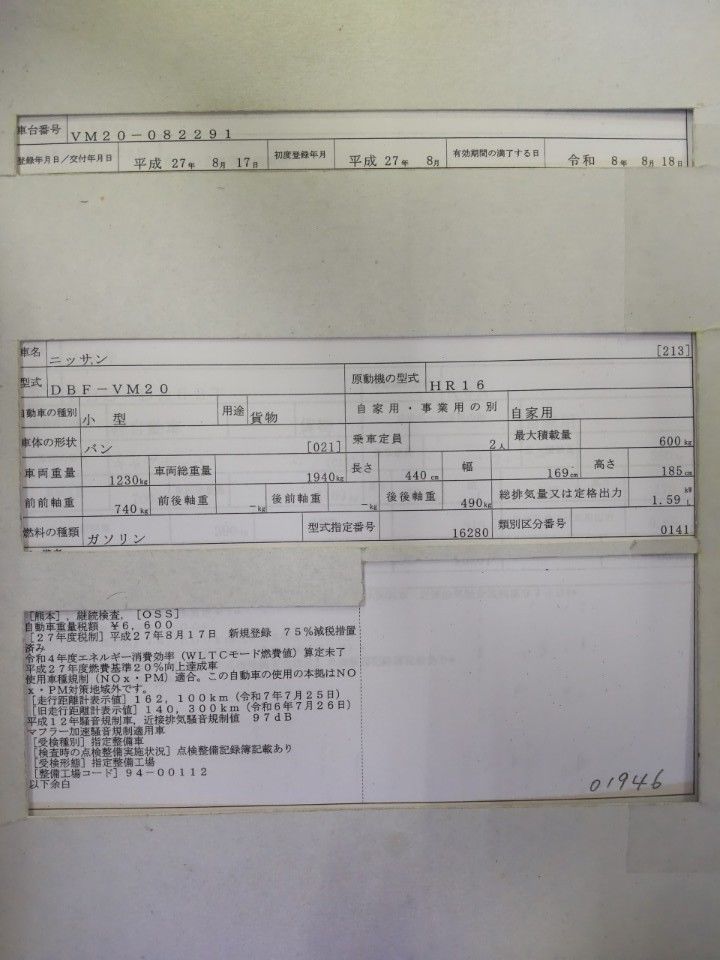 車台番号 VM20-082291
登録年月日/交付年月日 平成 27年 8月 17日 初度登録年月 平成 27年 8月 有効期間の満了する日 令和 8年 8月 18日
車名 ニッサン [213]
型式 DBF-VM20 原動機の型式 HR16
自動車の種別 小 型 用途 貨物 自家用・事業用の別 自家用
車体の形状 バン [021] 乗車定員 2人 最大積載量 600kg
車両重量 1230kg 車両総重量 1940kg 長さ 440cm 幅 169cm 高さ 185cm
前前軸重 740kg 前後軸重 -kg 後前軸重 -kg 後後軸重 490kg 総排気量又は定格出力 1.59 kW L
燃料の種類 ガソリン 型式指定番号 16280 類別区分番号 0141
[熊本],継続検査,[OSS]
自動車重量税額 ¥6,600
[27年度税制]平成27年8月17日 新規登録 75%減税措置
済み
令和4年度エネルギー消費効率(WLTCモード燃費値)算定未了
平成27年度燃費基準20%向上達成車
使用車種規制(NOx・PM)適合。この自動車の使用の本拠はNO
x・PM対策地域外です。
[走行距離計表示値]162,100km(令和7年7月25日)
[旧走行距離計表示値]140,300km(令和6年7月26日)
平成12年騒音規制車,近接排気騒音規制値 97dB
マフラー加速騒音規制適用車
[受検種別]指定整備車
[検査時の点検整備実施状況]点検整備記録簿記載あり
[受検形態]指定整備工場
[整備工場コード]94-00112
以下余白
01946